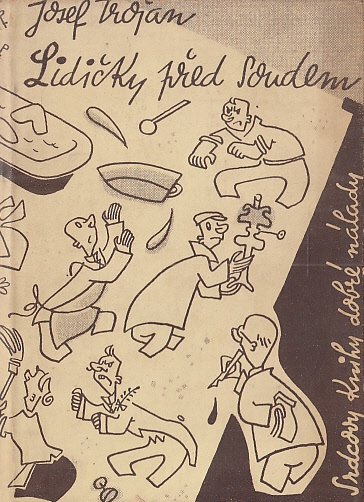 Josef Trojan
Lidičky před Soudem
Srdcovy Knihy dobré nálady